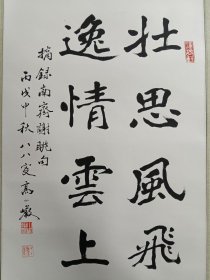 壯思風飛
逸情雲上
摘録南齊謝朓句
丙戌中秋八八叟高一峯